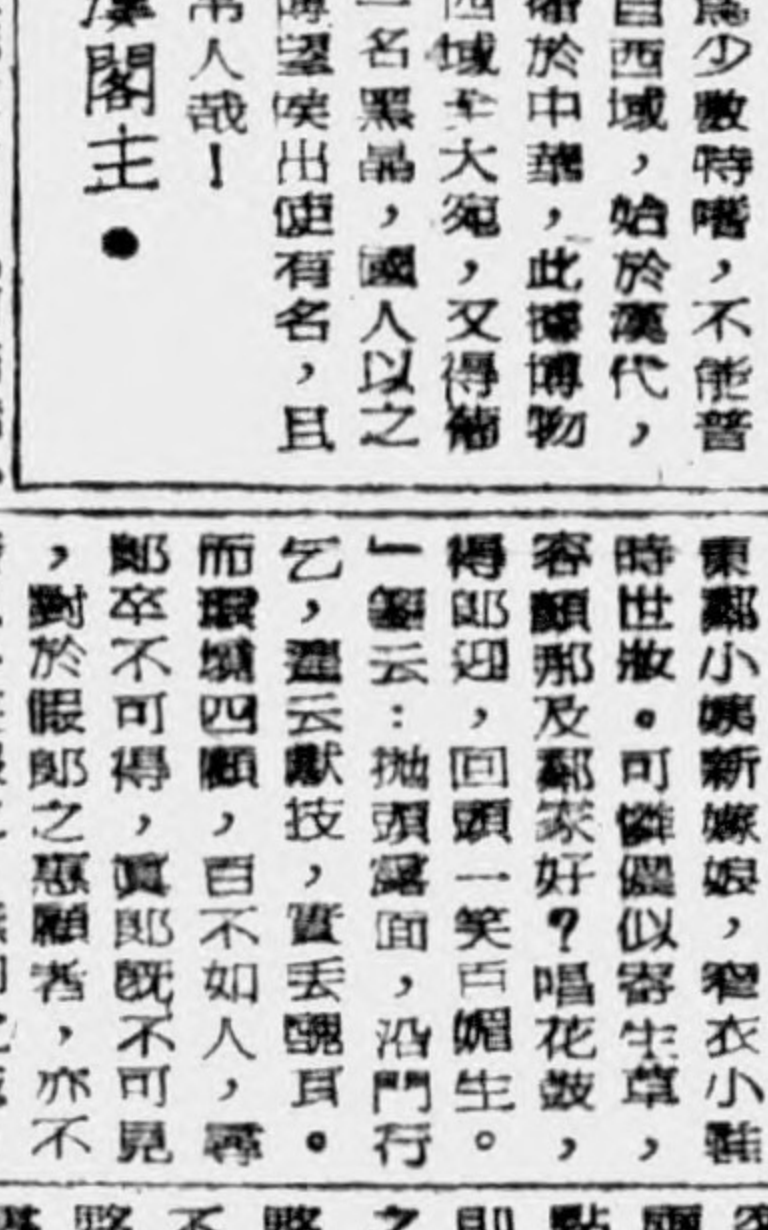 爲少數特嗜,不能普
自西域,始於漢代,
於中華,此據博物
西域大宛,又得葡
一名黑晶,國人以之
博望侯出使有名,且
常人哉!
閣主●
東鄰小姨新嫁娘,窄衣小鞋
時世妝。可憐儂似寄生草,
容顏那及鄰家好?唱花鼓,
得郎迎,回頭一笑百媚生。
」云:拋頭露面,沿門行
乞,云獻技,實丟醜耳。
而環境四顧,百不如人,尋
郎卒不可得,眞郎既不可見
,對於假郎之惠顧者,亦不